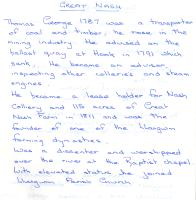 GREAT NASH
Thomas George 1787 was a transporter
of coal and timber, he rose in the
mining industry. He advised on the
ballast quay at Hook in 1791 which
sank. He became an advisor,
inspecting other collieries and steam
engines.
He became a lease holder for Nash
Colliery and 115 acres of Great
Nash Farm in 1811 and was the
founder of one of the Llangwm
farming dynasties.
Was a dissenter and worshipped
over the river at the Baptist chapel
With elevated status he joined
Llangwm Parish Church.